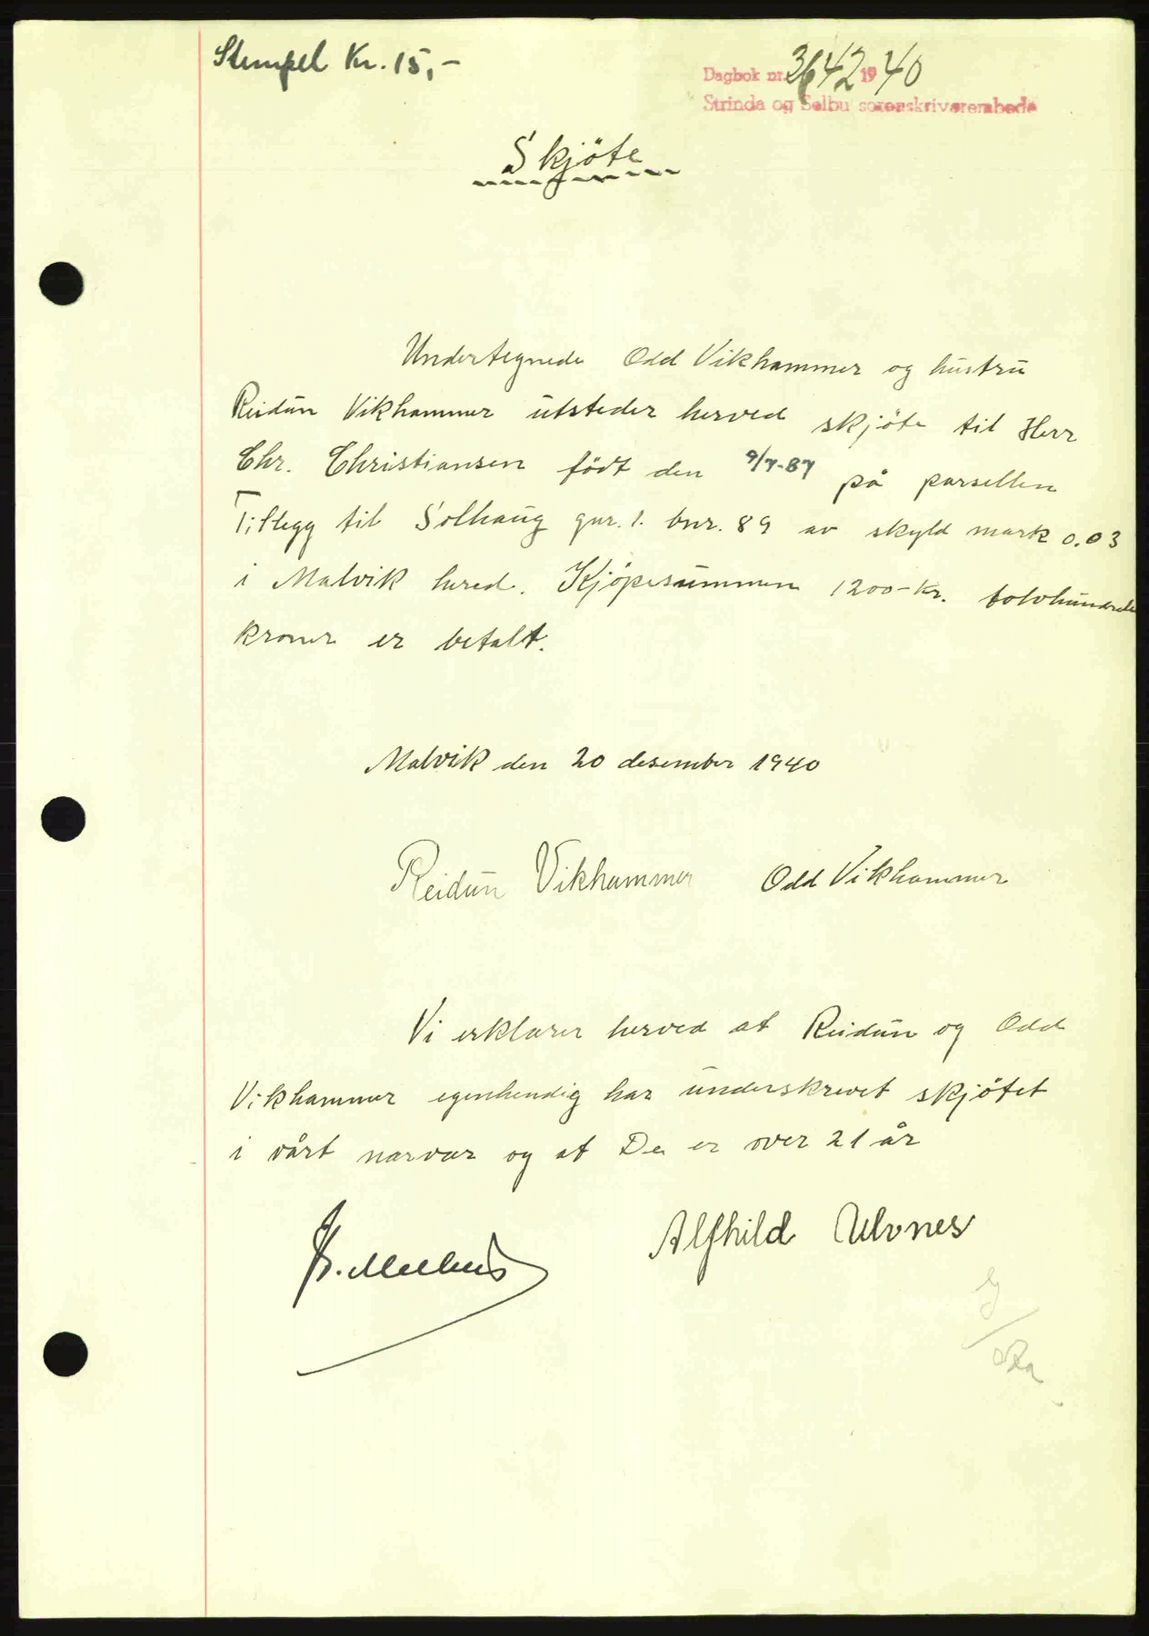 Stempel Kr. 15,-
Dagbok nr. 3642 1940
Strinda og Selbu sorenskriverembede
Skjöte
Undertegnede Odd Vikhammer og hustru
Reidun Vikhammer utsteder herved skjöte til Herr
Chr. Christiansen födt den 9/7-87 på parsellen
Tillegg til Solhaug gnr. 1. bnr. 89 av skyld mark 0.03
i Malvik hered. Kjöpesummen 1200-kr. tolvhundrede
kroner er betalt.
Malvik den 20 desember 1940
Reidun Vikhammer Odd Vikhammer
Vi erklærer herved at Reidun og Odd
Vikhammer egenhendig har underskrevet skjötet
i vårt nærvær og at De er over 21 år
Alfhild Ulvnes